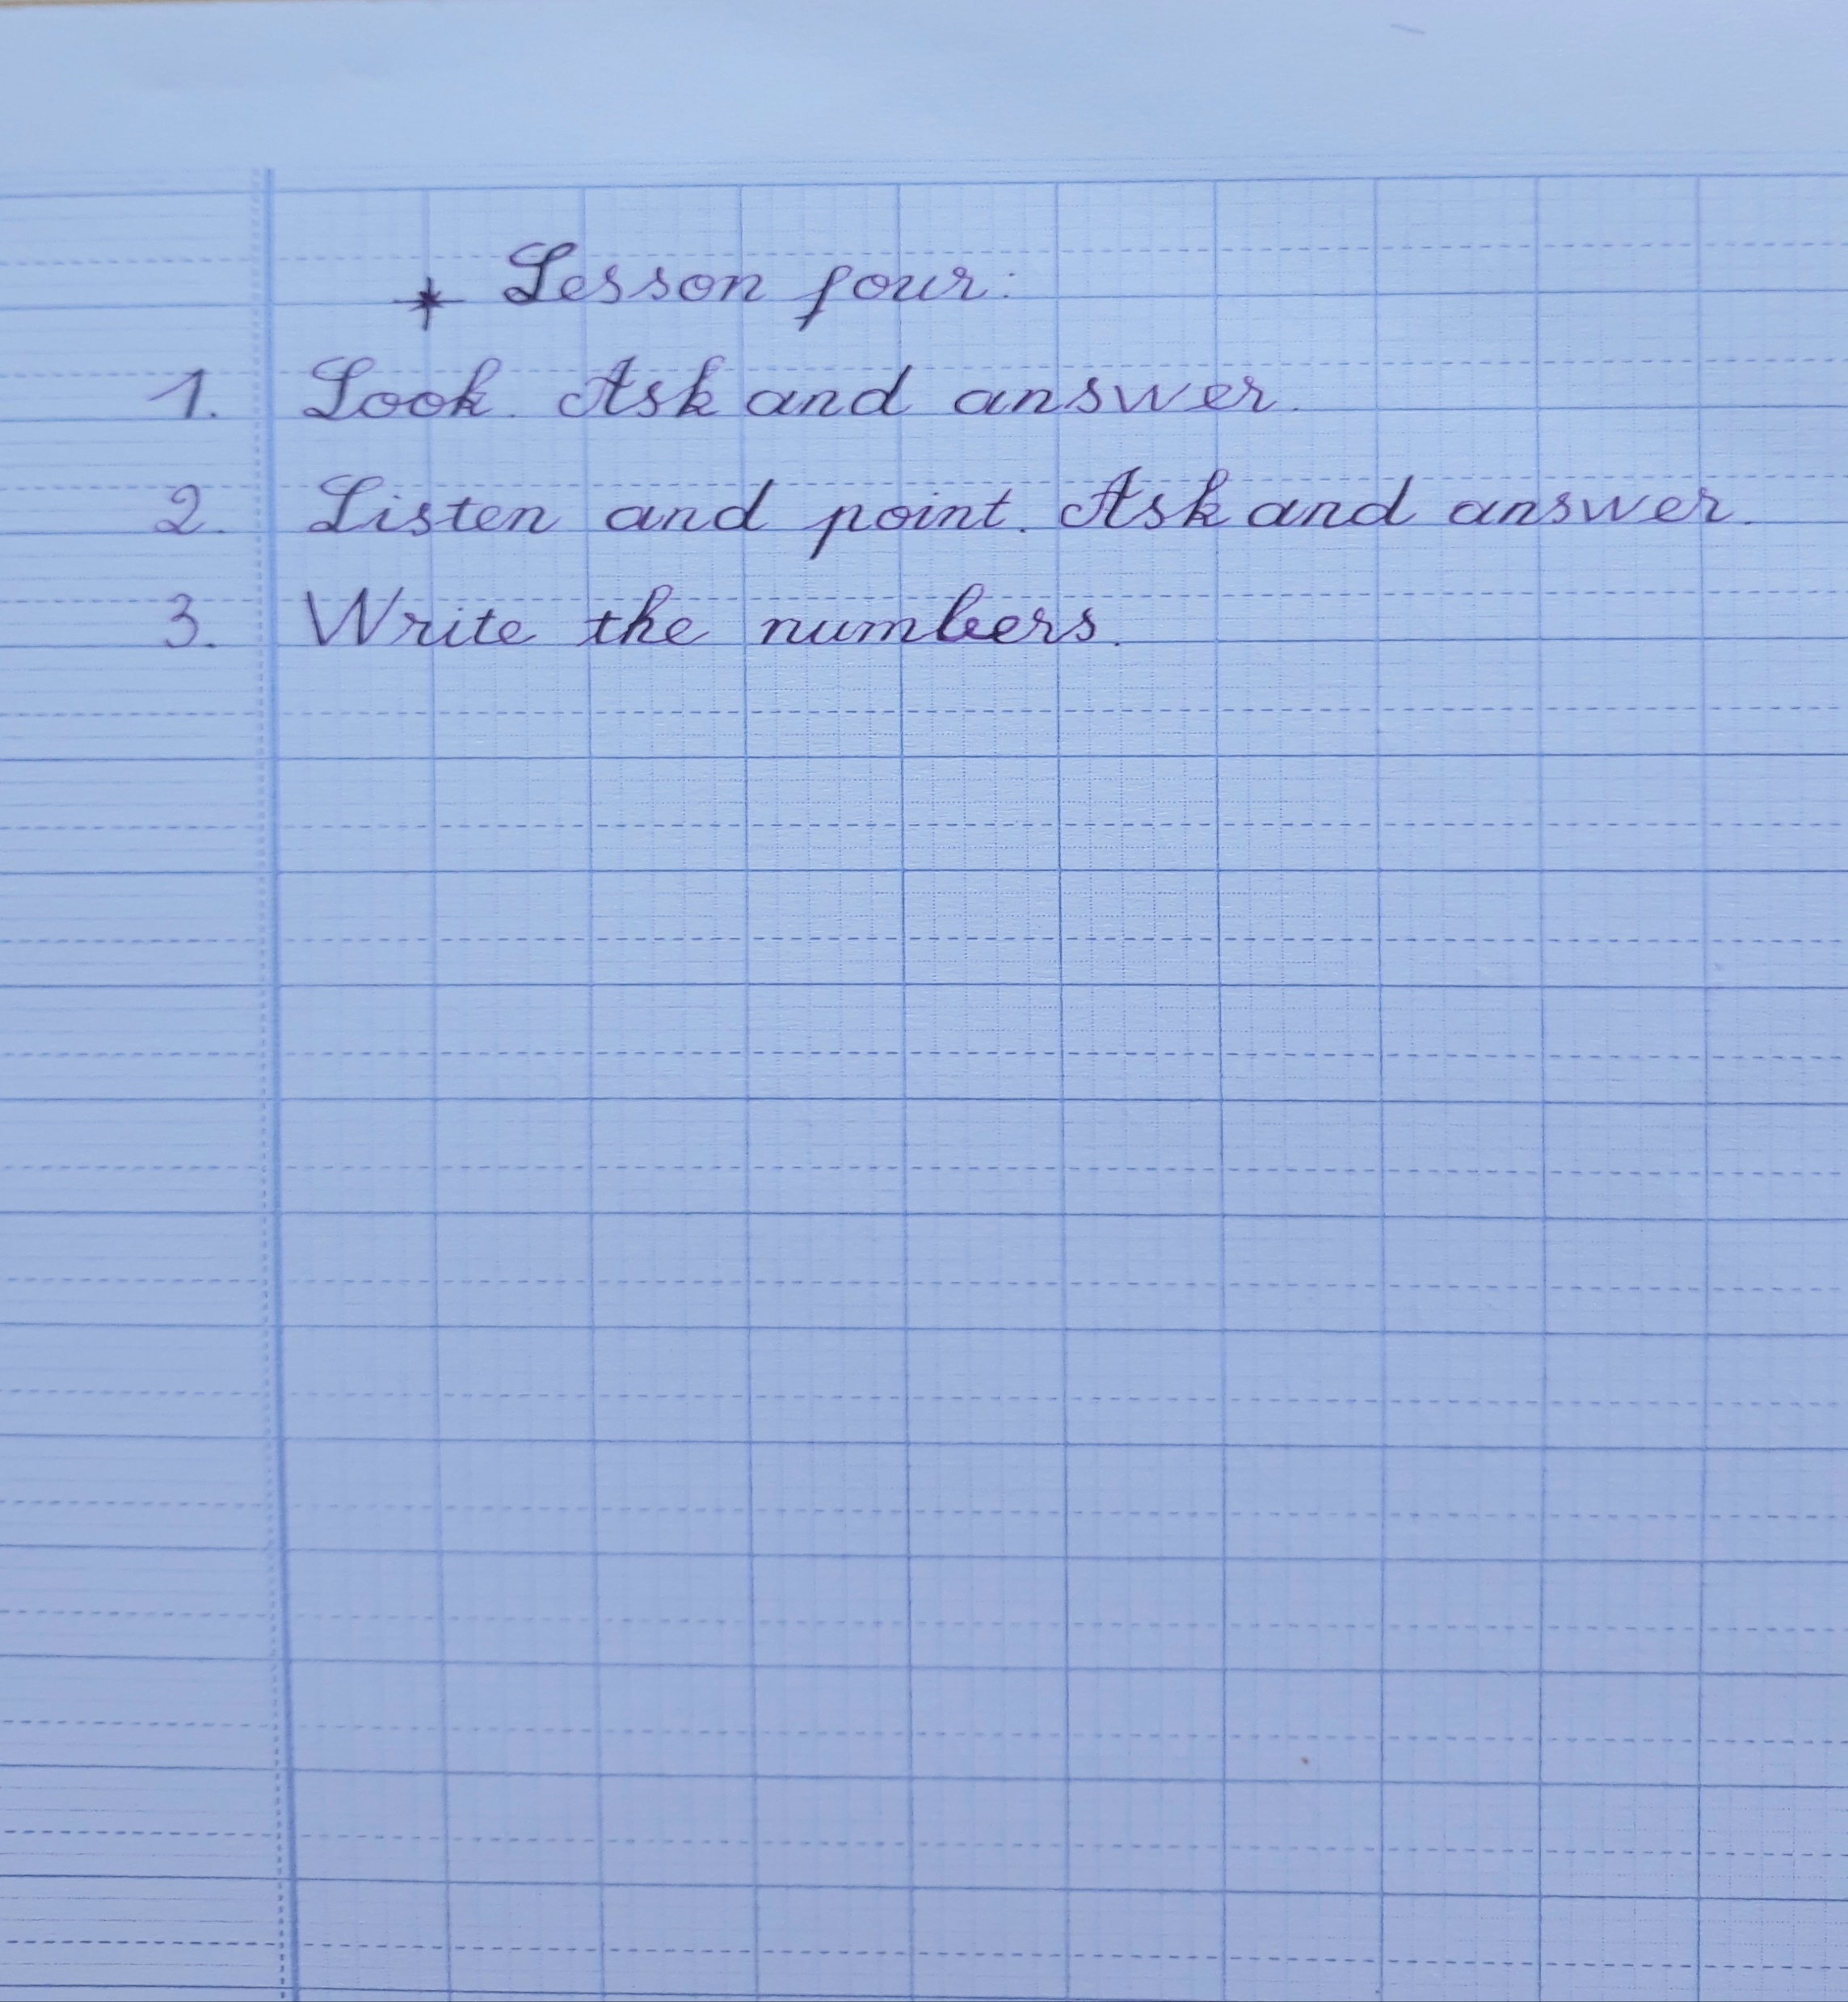 * Lesson four:
1. Look. Ask and answer.
2. Listen and point. Ask and answer.
3. Write the numbers.